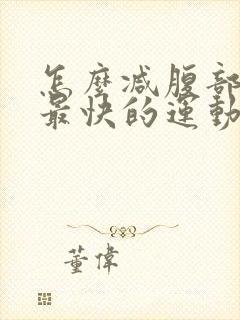 怎麼減腹部
最快的運動
董偉